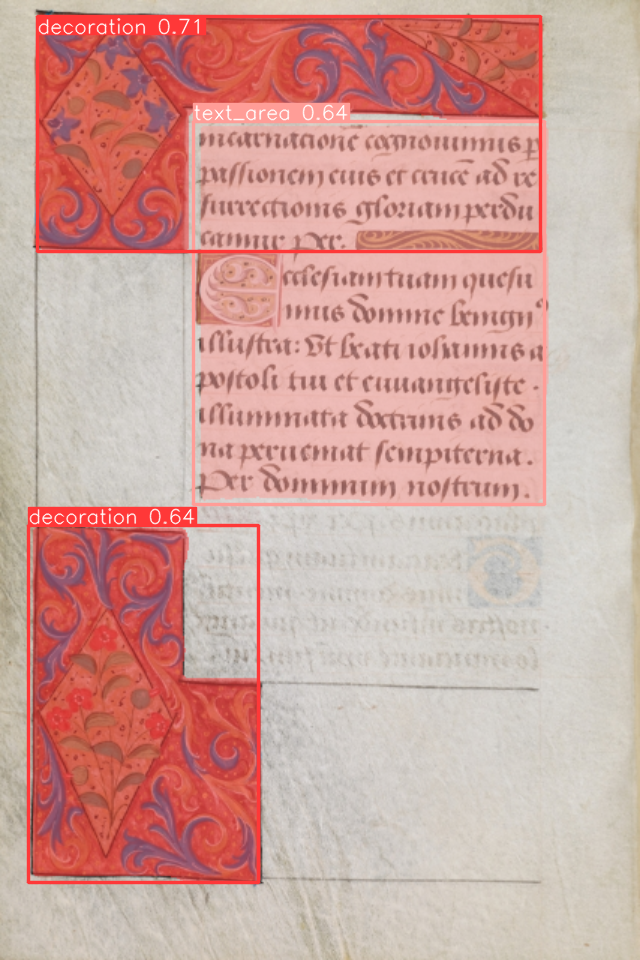 decoration 0.71
text_area 0.64
incarnatione cognouimus p
passionem eius et crucē ad re
surrectionis gloriam perdu
camur Per.
Ecclesiam tuam quesu
mus domine benign⁹
illustra: Vt beati iohannis a
postoli tui et euuangeliste.
illuminata doctrinis ad do
na perueniat sempiterna.
Per dominum nostrum.
decoration 0.64